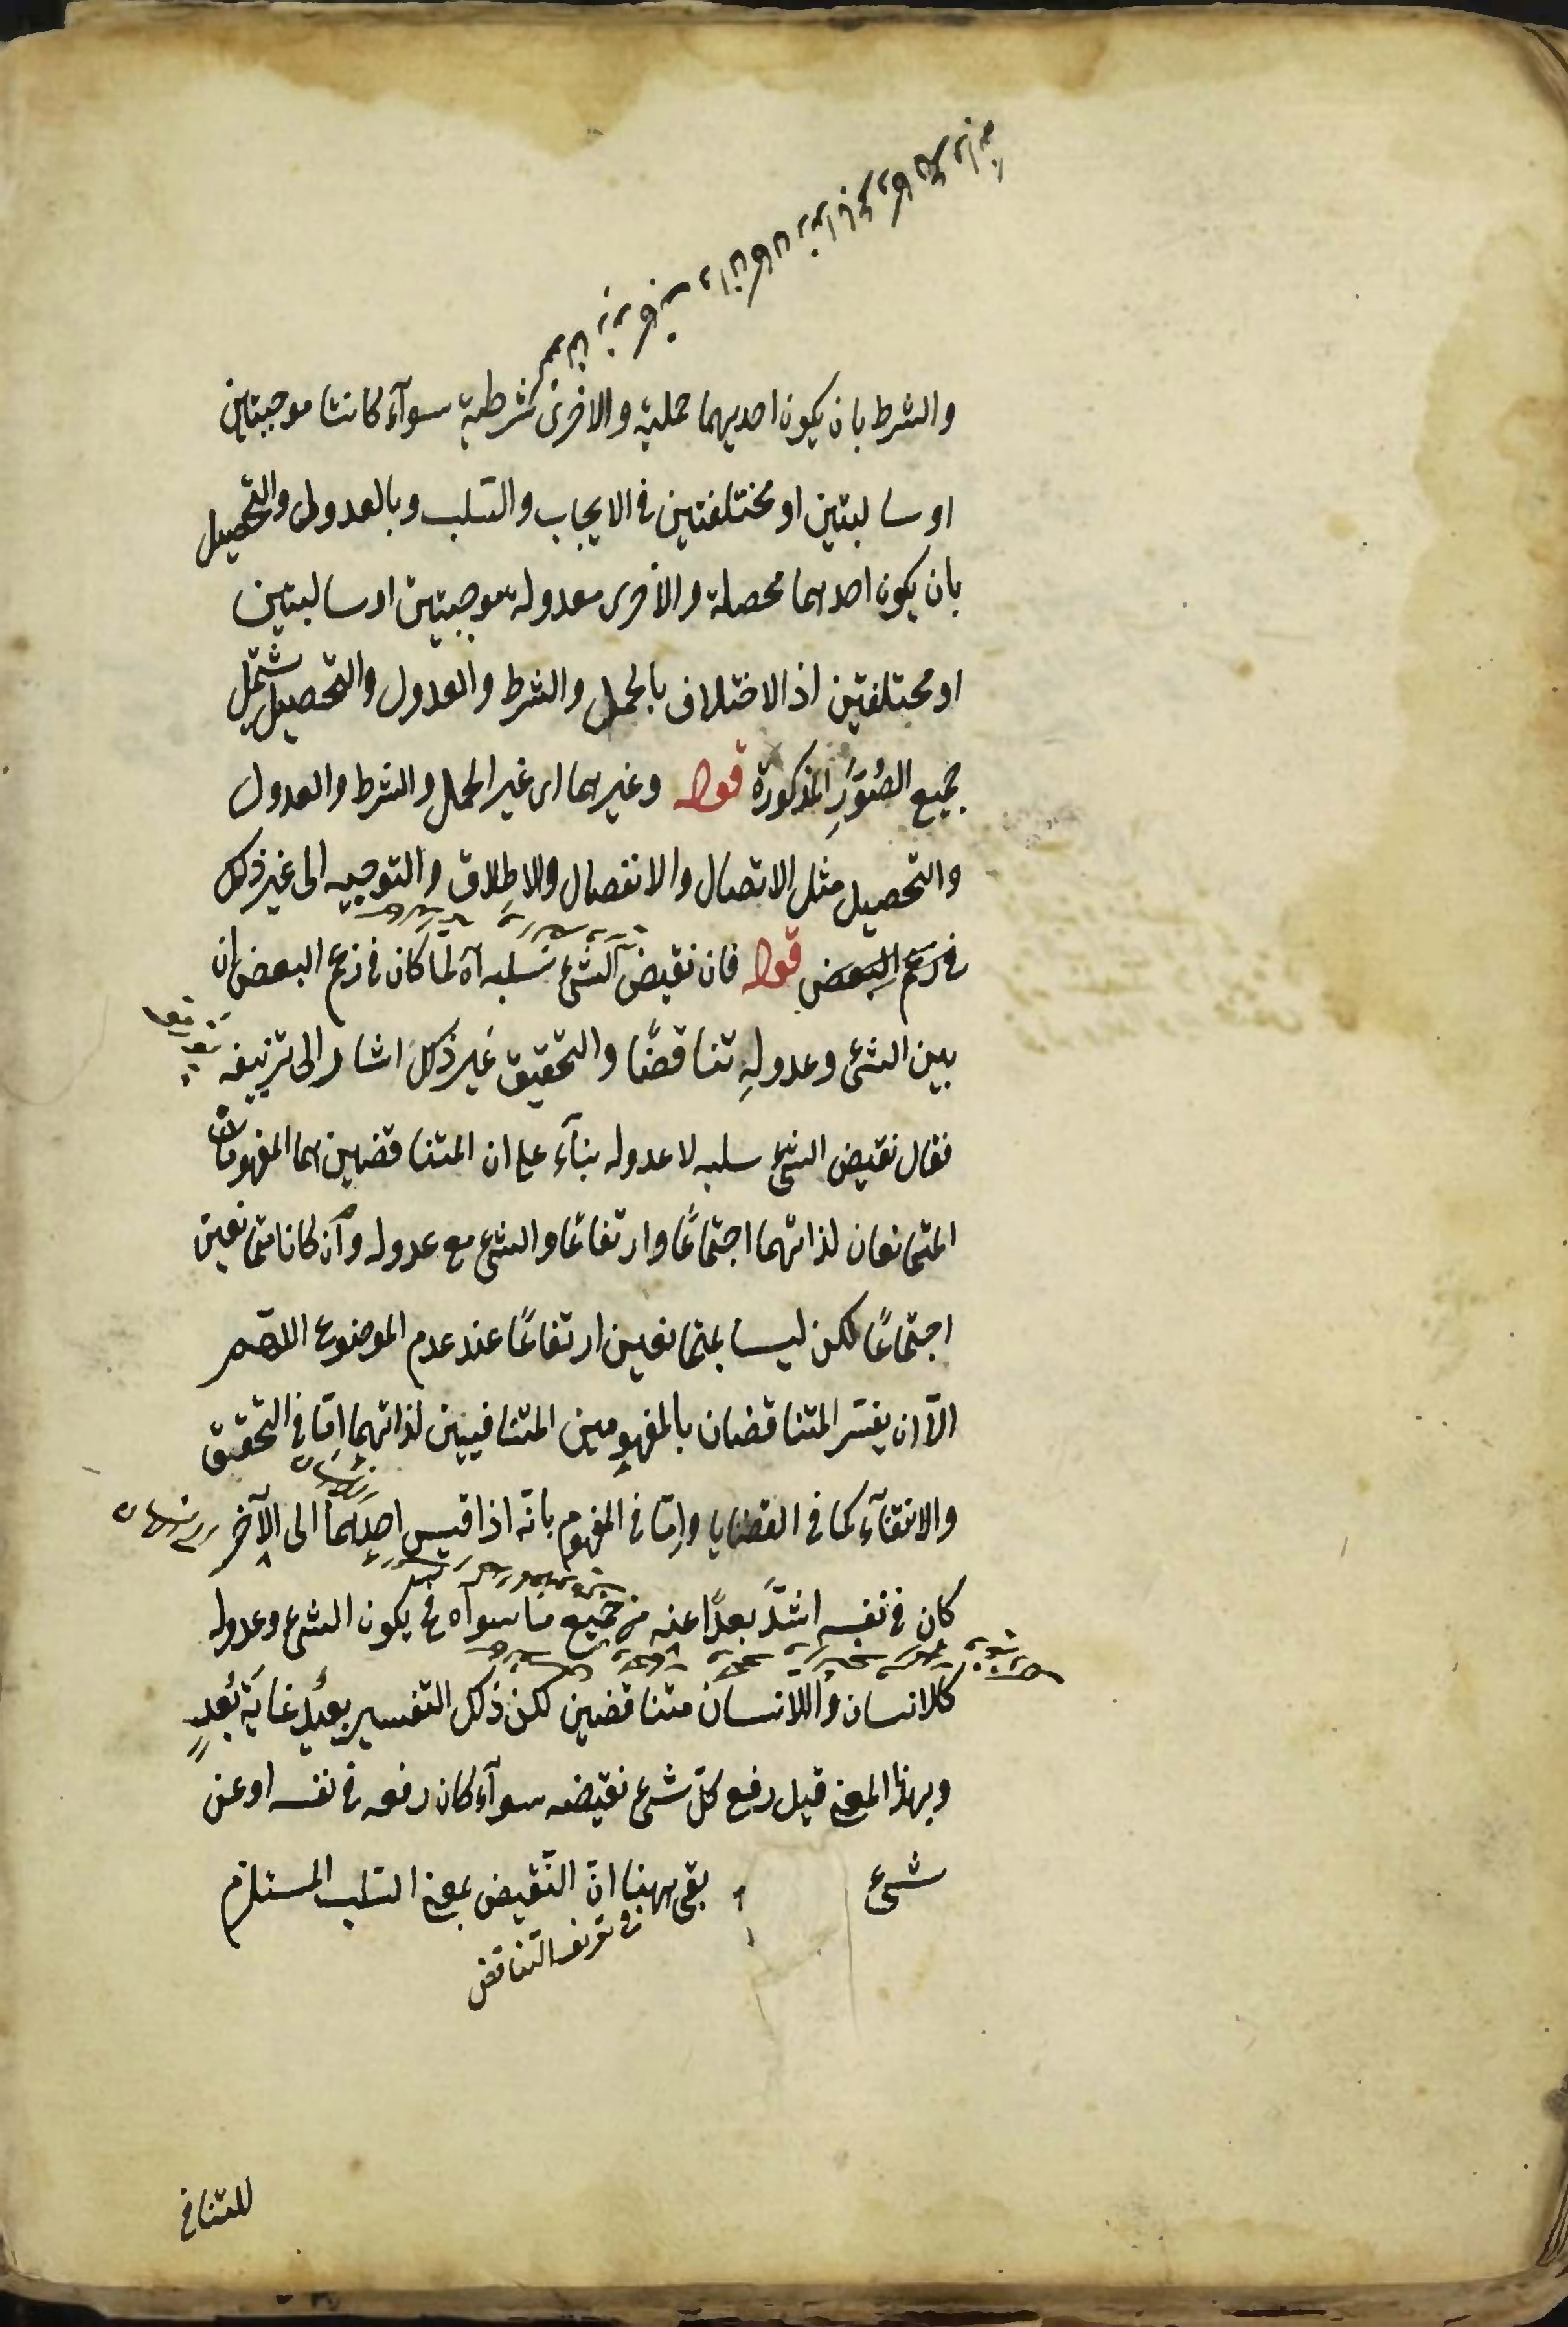 والشرط بان يكون احديهما حملية والاخرى شرطية سوآء كانتا موجبتين
او سالبتين او مختلفتين فى الايجاب والسّلب وبالعدول والتحصيل
بان يكون احديهما محصلة والأخرى معدولة موجبتين او سالبتين
او مختلفتين اذ الاختلاف بالحمل والشرط والعدول والتحصيل يشتمل
جميع الصُّوَرِ المذكورة قوله وغيرهما اى غير الحمل والشرط والعدول
والتحصيل مثل الاتصال والانفصال والاطلاق والتوجيه الى غير ذلك
فى زعم البعض قوله فان نقيض الشئ سلبه آه لمّا كان فى زعم البعض ان
بين الشئ وعدولهِ تناقضًا والتحقيق غير ذلك اشار الى تزييفه
فقال نقيض الشئ سلبه لا عدوله بنآء على ان المتناقضين هما المفهومان
المتمانعان لذاتهما اجتماعًا وارتفاعًا والشئ مع عدوله وان كانا متمانعين
اجتماعًا لكن ليسا بمتمانعين ارتفاعًا عند عدم الموضوع اللهم
الّا ان يفسّر المتناقضان بالمفهومين المتنافيين لذاتهما امّا فى التحقيق
والانتفآء كما فى القضايا وامّا فى المفهوم بانّه اذا قيس احدهما الى الآخر
كان فى نفسه اشدَّ بعدًا عنه من جميع ما سواه فح يكون الشئ وعدوله
كالانسان واللاانسان متناقضين لكن ذلك التفسير بعيد غاية بُعدٍ
وبهذا المعنى قيل رفع كلّ شئ نقيضه سوآء كان رفعه فى نفسه او عن
شئ بقى ههنا انّ النّقيض بمعنى السّلب المستلزم
فى تعريف التناقض
للتنافى